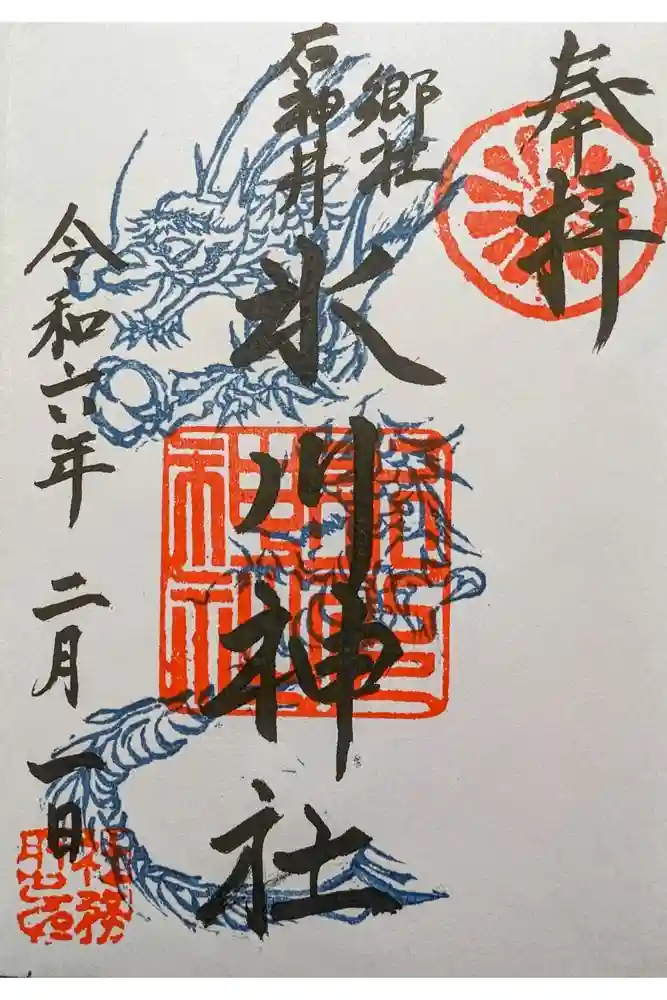 奉拝
郷社
石神井
氷川神社
令和六年 二月 一日
社務所